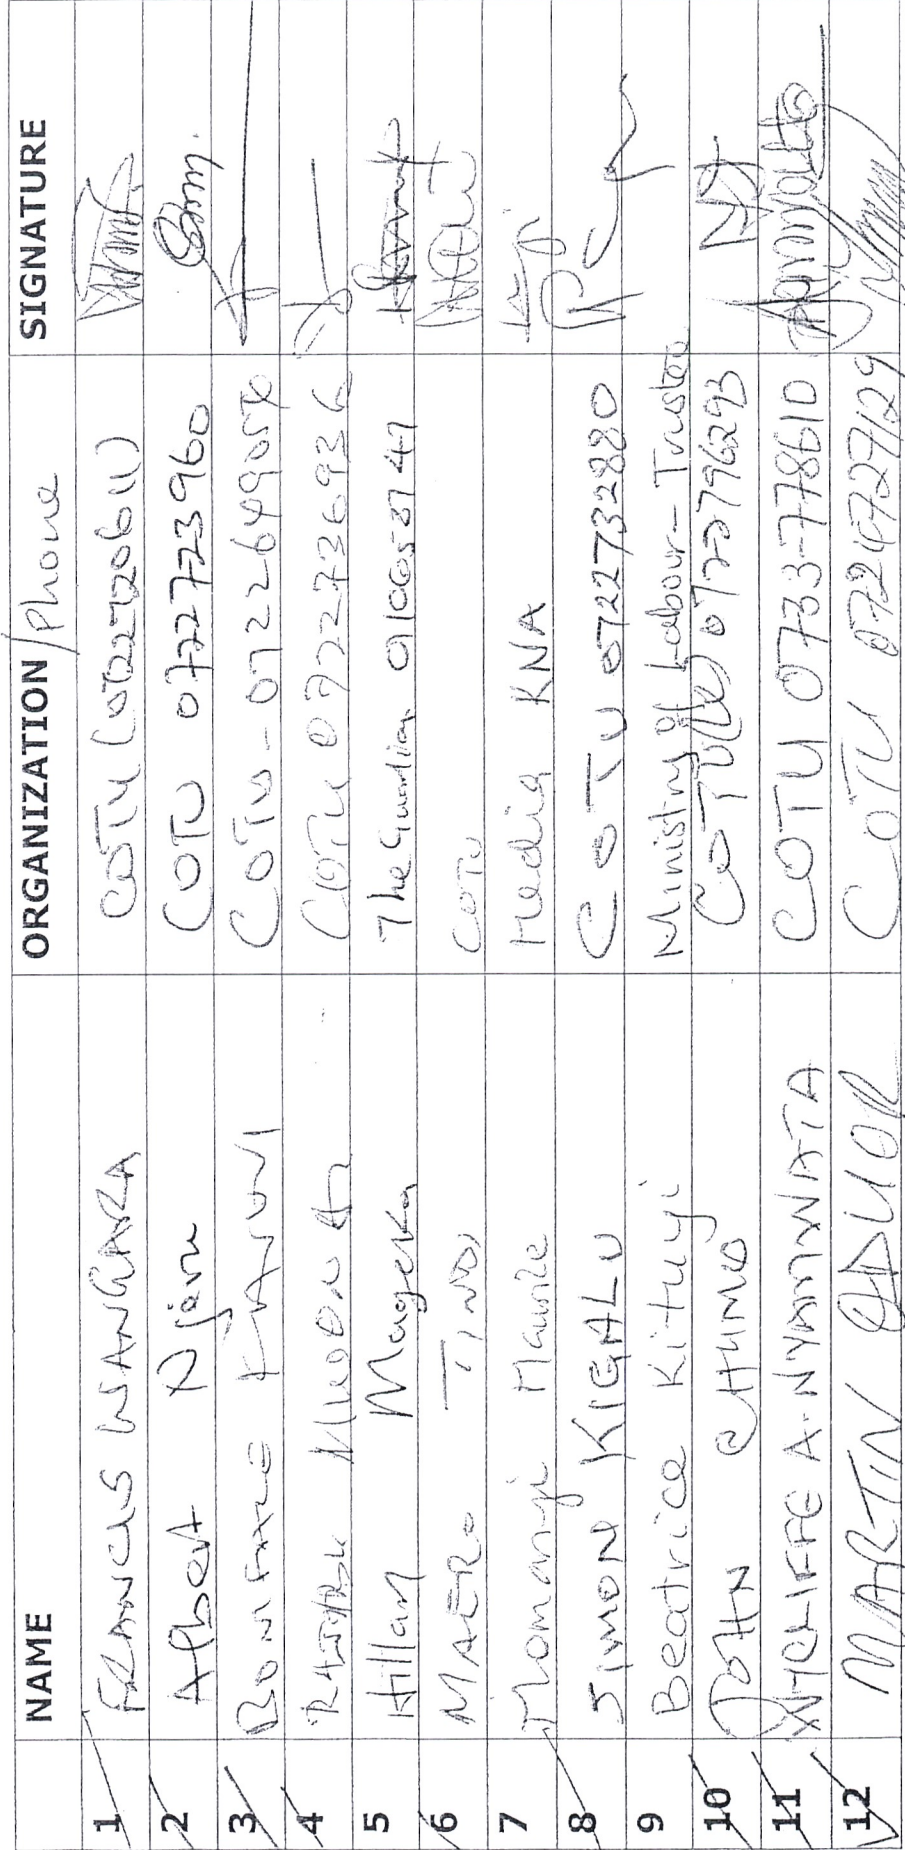 NAME ORGANIZATION/Phone SIGNATURE
1 FRANCIS WANGARA COTU (0722720611)
2 Albert Njeru COTU 0722773960
3 BONIFACE COTU - 0722649056
4 COTU 0722736936
5 Hillary Mageka The Guardian 0106583747
6 COTU
7 Momanyi Media KNA
8 SIMON KIGALU COTU 0722732880
9 Beatrice Kituyi Ministry of Labour - Trustee
10 JOHN CHUMO 0722796293
11 WYCLIFFE A. NYAMWATA COTU 0733-778610
12 MARTIN ODUOR COTU 0724727129